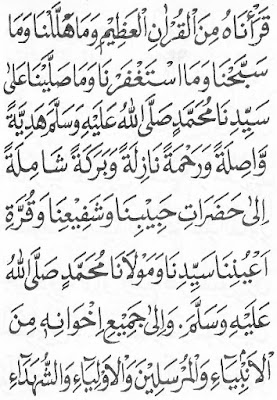 قَرَأْنَاهُ مِنَ الْقُرْاٰنِ الْعَظِيْمِ وَمَا هَلَّلْنَا وَمَا
سَبَّحْنَا وَمَا اسْتَغْفَرْنَا وَمَا صَلَّيْنَا عَلٰى
سَيِّدِنَا مُحَمَّدٍ صَلَّى اللهُ عَلَيْهِ وَسَلَّمَ هَدِيَّةً
وَّاصِلَةً وَرَحْمَةً نَازِلَةً وَبَرَكَةً شَامِلَةً
اِلٰى حَضَرَاتِ حَبِيْبِنَا وَشَفِيْعِنَا وَقُرَّةِ
اَعْيُنِنَا سَيِّدِنَا وَمَوْلَانَا مُحَمَّدٍ صَلَّى اللهُ
عَلَيْهِ وَسَلَّمَ. وَاِلٰى جَمِيْعِ اِخْوَانِهِ مِنَ
الْاَنْبِيَاءِ وَالْمُرْسَلِيْنَ وَالْاَوْلِيَاءِ وَالشُّهَدَاءِ